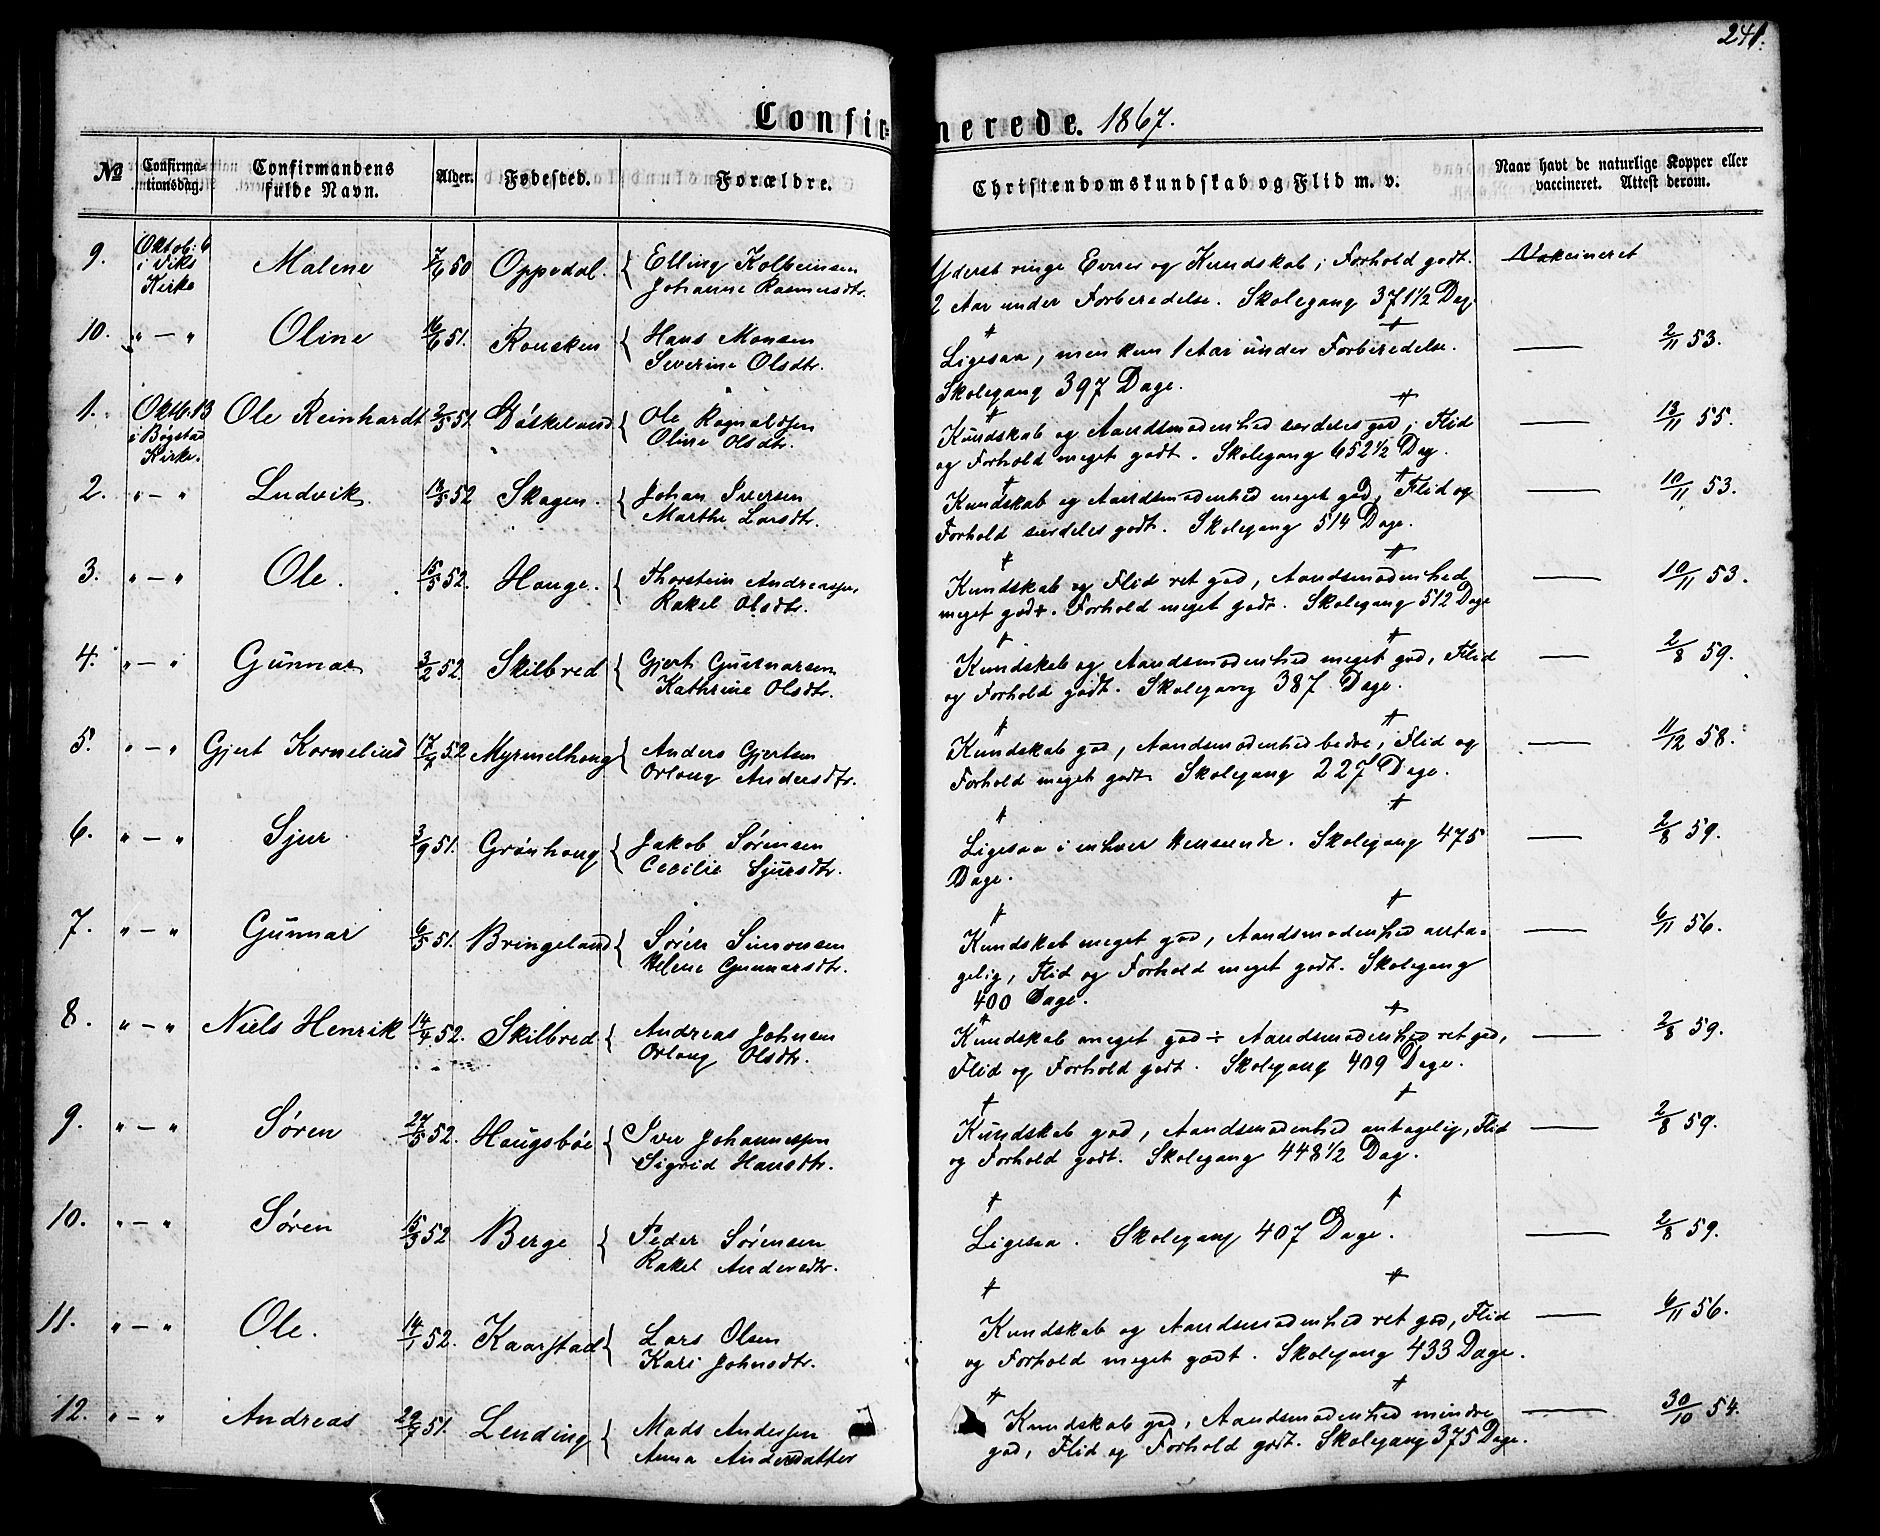 241.
Confirmerede. 1867.
No Confirmationsdag. Confirmandens fulde Navn. Alder. Fødested. Forældre. Christendomskundskab og Flid m. v. Naar havt de naturlige Kopper eller vaccineret. Attest derom.
9. Oktob: 6 i Viks Kirke Malene 7/6 50 Oppedal. { Elling Kolbeinsen
Johanne Rasmusdtr.
Yderst ringe Evner og Kundskab; Forhold godt. Vakcineret
2 Aar under Forberedelse. Skolegang 371 1/2 Dag.
10. " — " Oline 16/6 51. { Hans Monsen
Severine Olsdtr.
Ligesaa, men kun 1 Aar under Forberedelse. — 2/11 53.
Skolegang 397 Dage.
1. Oktb. 13 i Bygstad Kirke. Ole Reinhardt 2/5 51. Gaaskeland { Ole Ragnaldsen
Oline Olsdtr.
Kundskab og Aandsmodenhed særdeles god; Flid — 13/11 55.
og Forhold meget godt. Skolegang 652 1/2 Dag.
2. " — " Ludvik 13/5 52 Skagen. { Johan Iversen
Marthe Larsdtr.
Kundskab og Aandsmodenhed meget god; Flid og — 10/11 53.
Forhold særdeles godt. Skolegang 514 Dage.
3. " — " Ole. 15/5 52. Hauge. { Thorstein Andreassen
Rakel Olsdtr.
Kundskab og Flid ret god, Aandsmodenhed — 10/11 53.
meget god +. Forhold meget godt. Skolegang 512 Dage
4. " — " Gunnar 3/2 52 Skilbred { Gjert Gunnarsen
Kathrine Olsdtr.
Kundskab og Aandsmodenhed meget god, Flid — 2/8 59.
og Forhold godt. Skolegang 387 Dage.
5. " — " Gjert Kornelius 17/4 52 Myrmelhaug { Anders Gjertsen
Orlaug Andersdtr.
Kundskab god, Aandsmodenhed bedre, Flid og — 11/12 58.
Forhold meget godt. Skolegang 227 Dage.
6. " — " Sjur 3/9 51. Grønhaug { Jakob Sørensen
Cecilie Sjursdtr.
Ligesaa i enhver Henseende. Skolegang 475 — 2/8 59.
Dage.
7. " — " Gunnar 6/5 51. Bringeland { Søren Simonsen
Helene Gunnarsdtr.
Kundskab meget god, Aandsmodenhed anta- — 6/11 56.
gelig, Flid og Forhold meget godt. Skolegang
400 Dage.
8. " — " Niels Henrik 14/4 52. Skilbred { Andreas Johnsen
Orlaug Olsdtr.
Kundskab meget god ÷ Aandsmodenhed ret god, — 2/8 59.
Flid og Forhold godt. Skolegang 409 Dage.
9. " — " Søren 27/5 52. Haugsbøe { Iver Johannessen
Sigrid Hansdtr.
Kundskab god, Aandsmodenhed antagelig, Flid — 2/8 59.
og Forhold godt. Skolegang 448 1/2 Dag.
10. " — " Søren 15/3 52 Berge { Peder Sørensen
Rakel Andersdtr.
Ligesaa. Skolegang 407 Dage. — 2/8 59.
11. " — " Ole. 14/1 52. Kaarstad { Lars Olsen
Kari Johnsdtr.
Kundskab og Aandsmodenhed ret god, Flid — 6/11 56.
og Forhold meget godt. Skolegang 433 Dage.
12. " — " Andreas 29/7 51. Lending { Mads Andersen
Anna Andersdatter
Kundskab god, Aandsmodenhed mindre — 30/10 54.
god, Flid og Forhold godt. Skolegang 375 Dage.